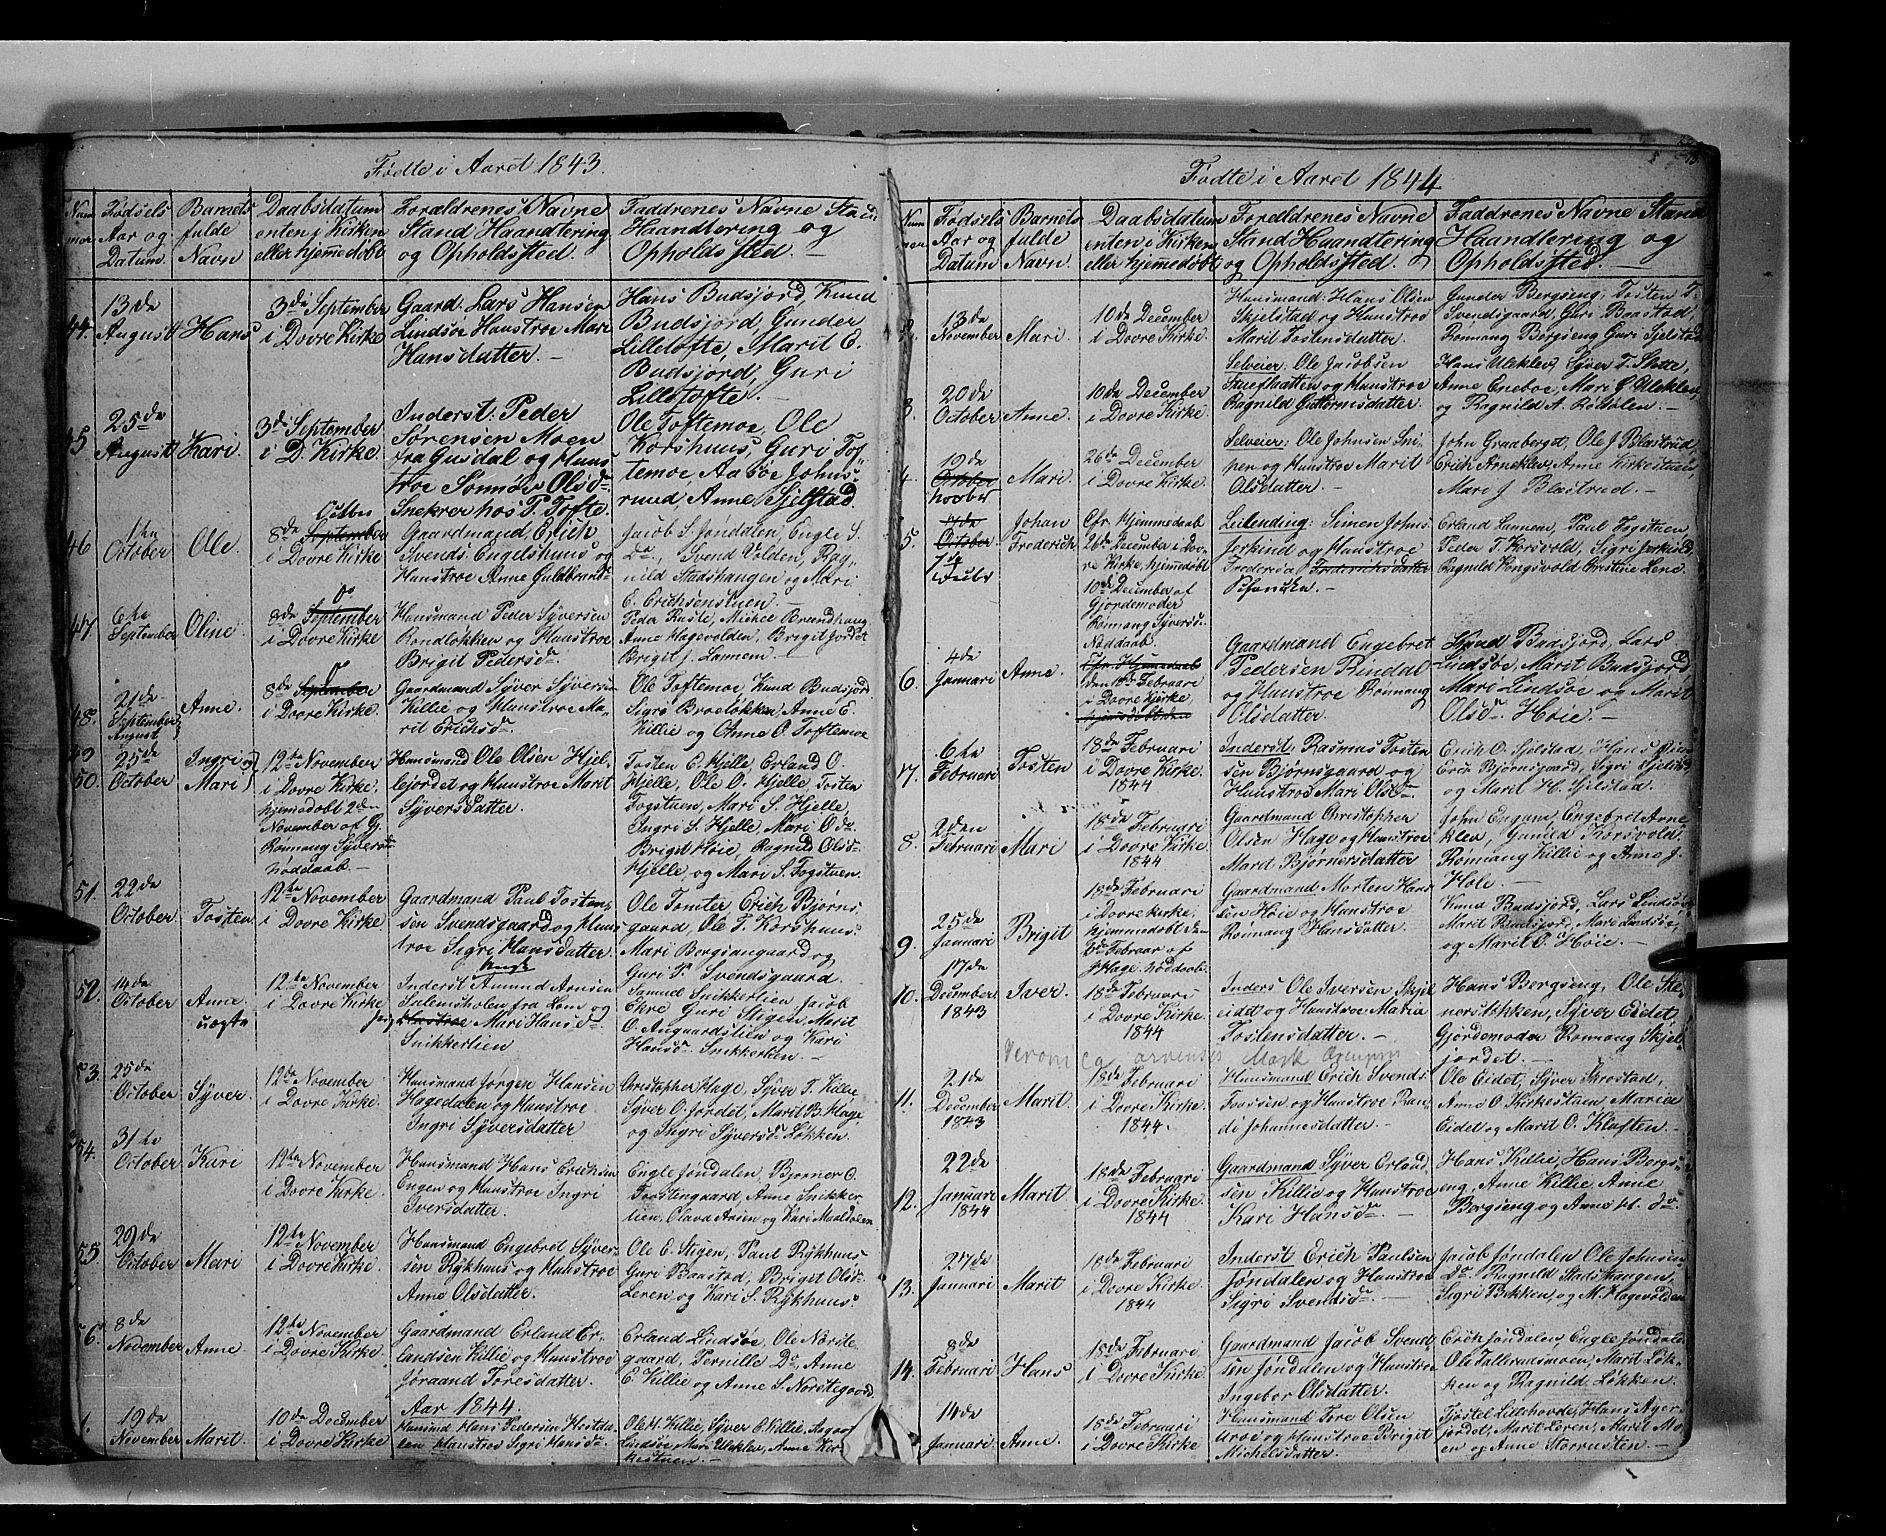 Fødte i Aaret 1843.
Num
mer
Fødsels
Aar og
Datum
Barnets
fulde
Navn
Daabsdatum
enten i Kirken
eller hjemmedøbt
Forældrenes Navne
Stand Haandtering
og Opholdssted.
Faddrenes Navne Stand
Haandtering og
Opholdssted. —
44.
13de
August
Hans
3de September
i Dovre Kirke
Gaard: Lars Hansen
Lindsøe Hanstroe Mari
Hansdatter. —
Hans Budsjord, Knud
Budsjord, Gunder
Lilletofte, Marit E.
Budsjord, Guri
Lilletofte. —
45
25de
August
Kari.
3de September
i D. Kirke
Inderst: Peder
Sørensen Moen
fra Gusdal og Huus
troe Olsdr
hos P. Tofte.
Ole Toftemoe, Ole
Korshuus, Guri Tof
temoe, Johns
ruud, Anne Sjelstad
46
1ste
October
Ole.
Octbr
8de September
i Dovre Kirke
Gaardmand, Erich
Svends. Engelshuus og
Hanstroe Anne Guldbrandsdr
Jacob S. Jøndalen, Engle S.
do, Svend Volden, Rag
nild Stadshaugen og Mari
E. Erichsenstuen. —
47.
6te
September
Oline.
8de September
i Dovre Kirke
Huusmand Peder Syversen
Rondløkken og Huustroe
Brigit Pedersdr
Peder Ruste, Michel Brendhaug
Anne Hagevolden, Brigit Jordet
Brigit J. Lannem. —
48.
21de
September
August
Anne.
8de September
i Dovre Kirke.
Gaardmand Syver Syversen
Killie og Huustroe Ma-
rit Erichsdr
Ole Toftemoe, Knud Budsjord
Sigri Broeløkken, Anne E.
Killie og Anne O. Toftemoe
49
50.
25de
October
Ingri og
Mari
12te November
i Dovre Kirke.
hjemedøbt 2den
November af Gj.
Rønnaug Syversdr
Nøddaab. —
Huusmand Ole Olsen Hjel
lejordet og Huustroe Marit
Syversdatter.
Tosten E. Hjelle, Erland O.
Hjelle, Ole O. Hjelle, Tosten
Fogstuen, Mari S. Hjelle,
Ingri S. Hjelle, Mari O do.
Brigit Høie, Ragnild Olsdr
Hjelle, og Mari S. Fogstuen.
51.
22de
October
Tosten
12te November
i Dovre Kirke
Gaardmand Paul Tosten
sen Svendsgaard og Huus
troe Sigri Hansdatter.
Ole Tomter Erich Bjørns
gaard, Ole T. Korshuus
Mari Bergseng og
Guri P. Svendsgaard
52.
14de
October
Anne.
uægte
12te November
i Dovre Kirke
Ungk.
Inderst Amund Arnsen
Sulemsholen fra Lom og
pig Huustroe Mari Hansdr
Snikkerlien
Samuel Snikkerlien, Jacob
Ekre Guri Stigen, Marit
O. Angaardslien og Kari
Hansdr Snikkerlien. —
53.
25de
October
Syver.
12te November
i Dovre Kirke.
Huusmand Jørgen Hansen
Hagedalen og Huustroe
Ingri Syversdatter
Christopher Hage, Syver T. Killie
Syver O. Jordet, Marit B. Hage
og Ingri Syversdr Løkken.
54.
31te
October
Kari
12te November
i Dovre Kirke.
Huusmand Hans Erichsen
Engen og Huustroe Ingri
Iversdatter.
Engle Jøndalen, Bjørner O.
Toftengaard, Anne Snikker
lien, Olava Arsen og Kari Moldalen
55.
29de
October
Mari
12te November
i Dovre Kirke.
Huusmand Engebret Syver
sen Rykhuus og Huustroe
Anne Olsdatter.
Ole E. Stigen, Paul Rykhuus
Guri Baastad, Brigit Olsdr
Leren, og Kari S. Rykhuus.
56.
8de
November
Anne.
12te November
i Dovre Kirke.
Gaardmand Erland Er-
landsen Killie og Huustroe
Jøraand Toresdatter.
Erland Lindsøe, Ole Norste-
gaard, Pernille Do, Anne
E. Killie og Anne S. Norstegaard
Aar 1844.
1.
19de
November
Marit.
10de December
i Dovre Kirke
Huusmd Hans Pedersen Hestda-
len Huustroe Sigri Hansdr
Ole H. Killie, Syver E. Killie, Aagot
Lindsøe Mari Uleklev, Anne Kir-
kestuen. —
Fødte i Aaret 1844
Num
mer
Fødsels
Aar og
Datum
Barnets
fulde
Navn.
Daabsdatum
enten i Kirken
eller hjemmedøbt
Forældrenes Navne
Stand Haandtering
og Opholdssted.
Faddrenes Navne Stand
Haandtering og
Opholdssted. —
2.
13de
November
Mari.
10de December
i Dovre Kirke.
Huusmand: Hans Olsen
Skjelstad og Huustroe
Marit Tostensdatter.
Gunder Bergseng, Tosten T.
Svendsgaard, Guri Baastad,
Rønnaug Bergseng Guri Sjelstad
3.
20de
October
Anne.
10de December
i Dovre Kirke.
Selveier: Ole Jacobsen
Stuefladten og Huustroe
Ragnild Guttormsdatter.
Hans Uleklev, Syver T. Slette
Anne Eneboe, Mari J. Uleklev,
og Ragnild A. Rotsølen. —
4.
19de
October
Novbr
Mari.
26de December
i Dovre Kirke.
Selveier: Ole Johnsen Sni-
pen og Huustroe Marit
Olsdatter. —
John Graaberget, Ole J. Blæstrud,
Erich Arneklev, Anne Kirkestuen
Mari J. Blæstrud. —
5.
14de
October.
Johan
Frederich
Cfr. Hjemmedaab
26de December i Dov-
re Kirke, hjemedøbt
10de December af
Gjordemoder
Rønnaug Syversdr
Nøddaab.
Leilending: Simen Johns.
Jorkind og Huustroe
Frederica Frederichsdatter
Erland Lannem, Paul Fogstuen
Peder T. Korsvold, Sigri Jorkind
Ragnild Kongsvold Cristine Lene
6.
4de
Januari
Anne.
Cfr. Hjemmedaab
den 18de Februari
i Dovre Kirke
hjemedøbt den
Gaardmand Engebret
Pedersen Rindal
og Huustroe Rønnaug
Olsdatter.
Knud Budsjord, Lars
Lindsøe, Marit Budsjord,
Mari Lindsøe og Marit
Olsdr Høie. —
7.
6te
Februari
Tosten
18de Februari
i Dovre Kirke.
1844
Inderst: Rasmus Tosten
sen Bjørnsgaard og
Huustroe Mari Olsdr.
Erich O. Sjelstad, Hans
Erich Bjørnsgaard, Sigri Sjelstad
og Marit H. Sjelstad.
8.
2den
Februari
Mari
18de Februari
i Dovre Kirke
1844
Gaardmand Christopher
Olsen Hage og Huustroe
Marit Bjørnersdatter
John Engum, Engebret Arne
klev, Gunild Korsvold,
Rønnaug Killie og Anne J.
Hole. —
9.
25de
Januari
Brigit
18de Februari
i Dovre kirke,
hjemmedøbt den
Februar af
Hage. nøddaab.
Gaardmand Morten Han
sen Høie og Huustroe
Rønnaug Hansdatter.
Knud Budsjord, Lars Lindsøe,
Marit Budsjord, Mari Lindsøe,
og Marit O. Høie. —
10.
17de
December
1843
Iver.
18de Februari
i Dovre Kirke.
1844
Inderst Ole Iversen Skjel
eidet og Huustroe Maria
Tostensdatter.
Hans Bergseng, Ole Ste-
norsløkken, Syver Eidet,
Gjordemoder Rønnaug Skjel-
jordet. —
11.
21de
December
1843
Marit.
18de Februari
i Dovre Kirke.
1844.
Huusmand Erich Svends.
Fossen og Huustroe Ran-
di Johannesdatter. —
Ole Eidet, Syver Skrostad,
Anne O. Kirkestuen Maria
Eidet og Marit O. Kluften. —
12.
22de
Januari
1844
Marit
18de Februari
i Dovre Kirke.
1844
Gaardmand Syver Erland
sen Killie og Huustroe
Kari Hansdr. —
Hans Killie, Hans Bergs-
eng, Anne Killie, Anne
Bergseng og Anne H. do. —
13.
27de
Januari
Marit
18de Februari
i Dovre Kirke
1844
Inderst Erich Paulsen
Jøndalen og Huustroe
Sigri Svendsdr —
Jacob Jøndalen Ole Johnsen
Do. Ragnild Stadshaugen,
Sigri Bekken, og M. Hagevolden
14.
8de
Februari
Hans
18de Februari
i Dovre Kirke
Gaardmand Jacob Svend
sen Jøndalen og Huustroe
Ingebor Olsdatter.
Erich Jøndalen, Engle Jøndalen
Ole Tallerudsmoen, Marit Løk-
ken og Ragnild Løkken.
14de
Januari.
Anne.
18de Februari
i Dovre Kirke
Huusmand Tore Olsen
og Huustroe Brigit
Michelsdatter.
Tjøstel Lillehovde, Hans Ager-
jordet, Marit Leren, Marit Mo-
en og Anne Storrusten —